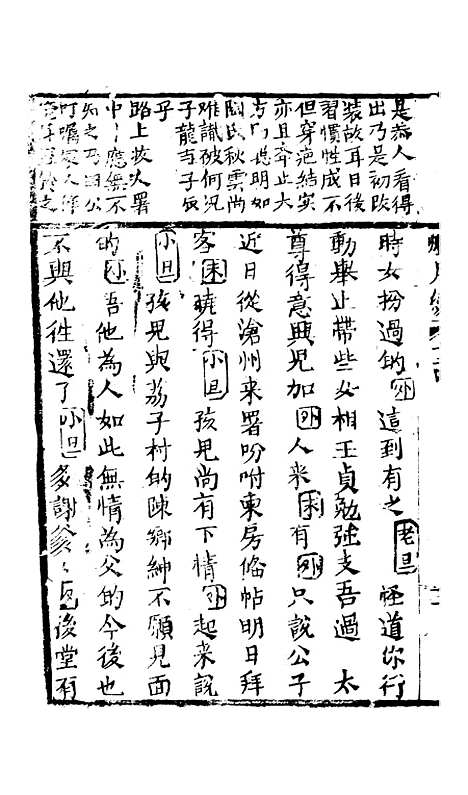 是為人看得
出乃是初改
裝故耳日後
習慣性成不
但穿袍結束
亦且奔止大
方聰明如
關氏秋雲尚
难識破何況
子龍与子辰
乎
路上妝人署
中
知之乃
叮囑
時女扮過的外這到有之老旦怪道你行
動舉止帶些女相王貞勉强支吾過太
尊得意與兒加外人来末有外只說公子
近日從滄州来署吩咐東房俻帖明日拜
客末曉得小旦孩兒尚有下情外起来說
小旦孩兒與荔子村的陳鄉紳不願見面
的外吾他為人如此無情為父的今後也
不與他徃還了小旦多謝爹々旦後堂有